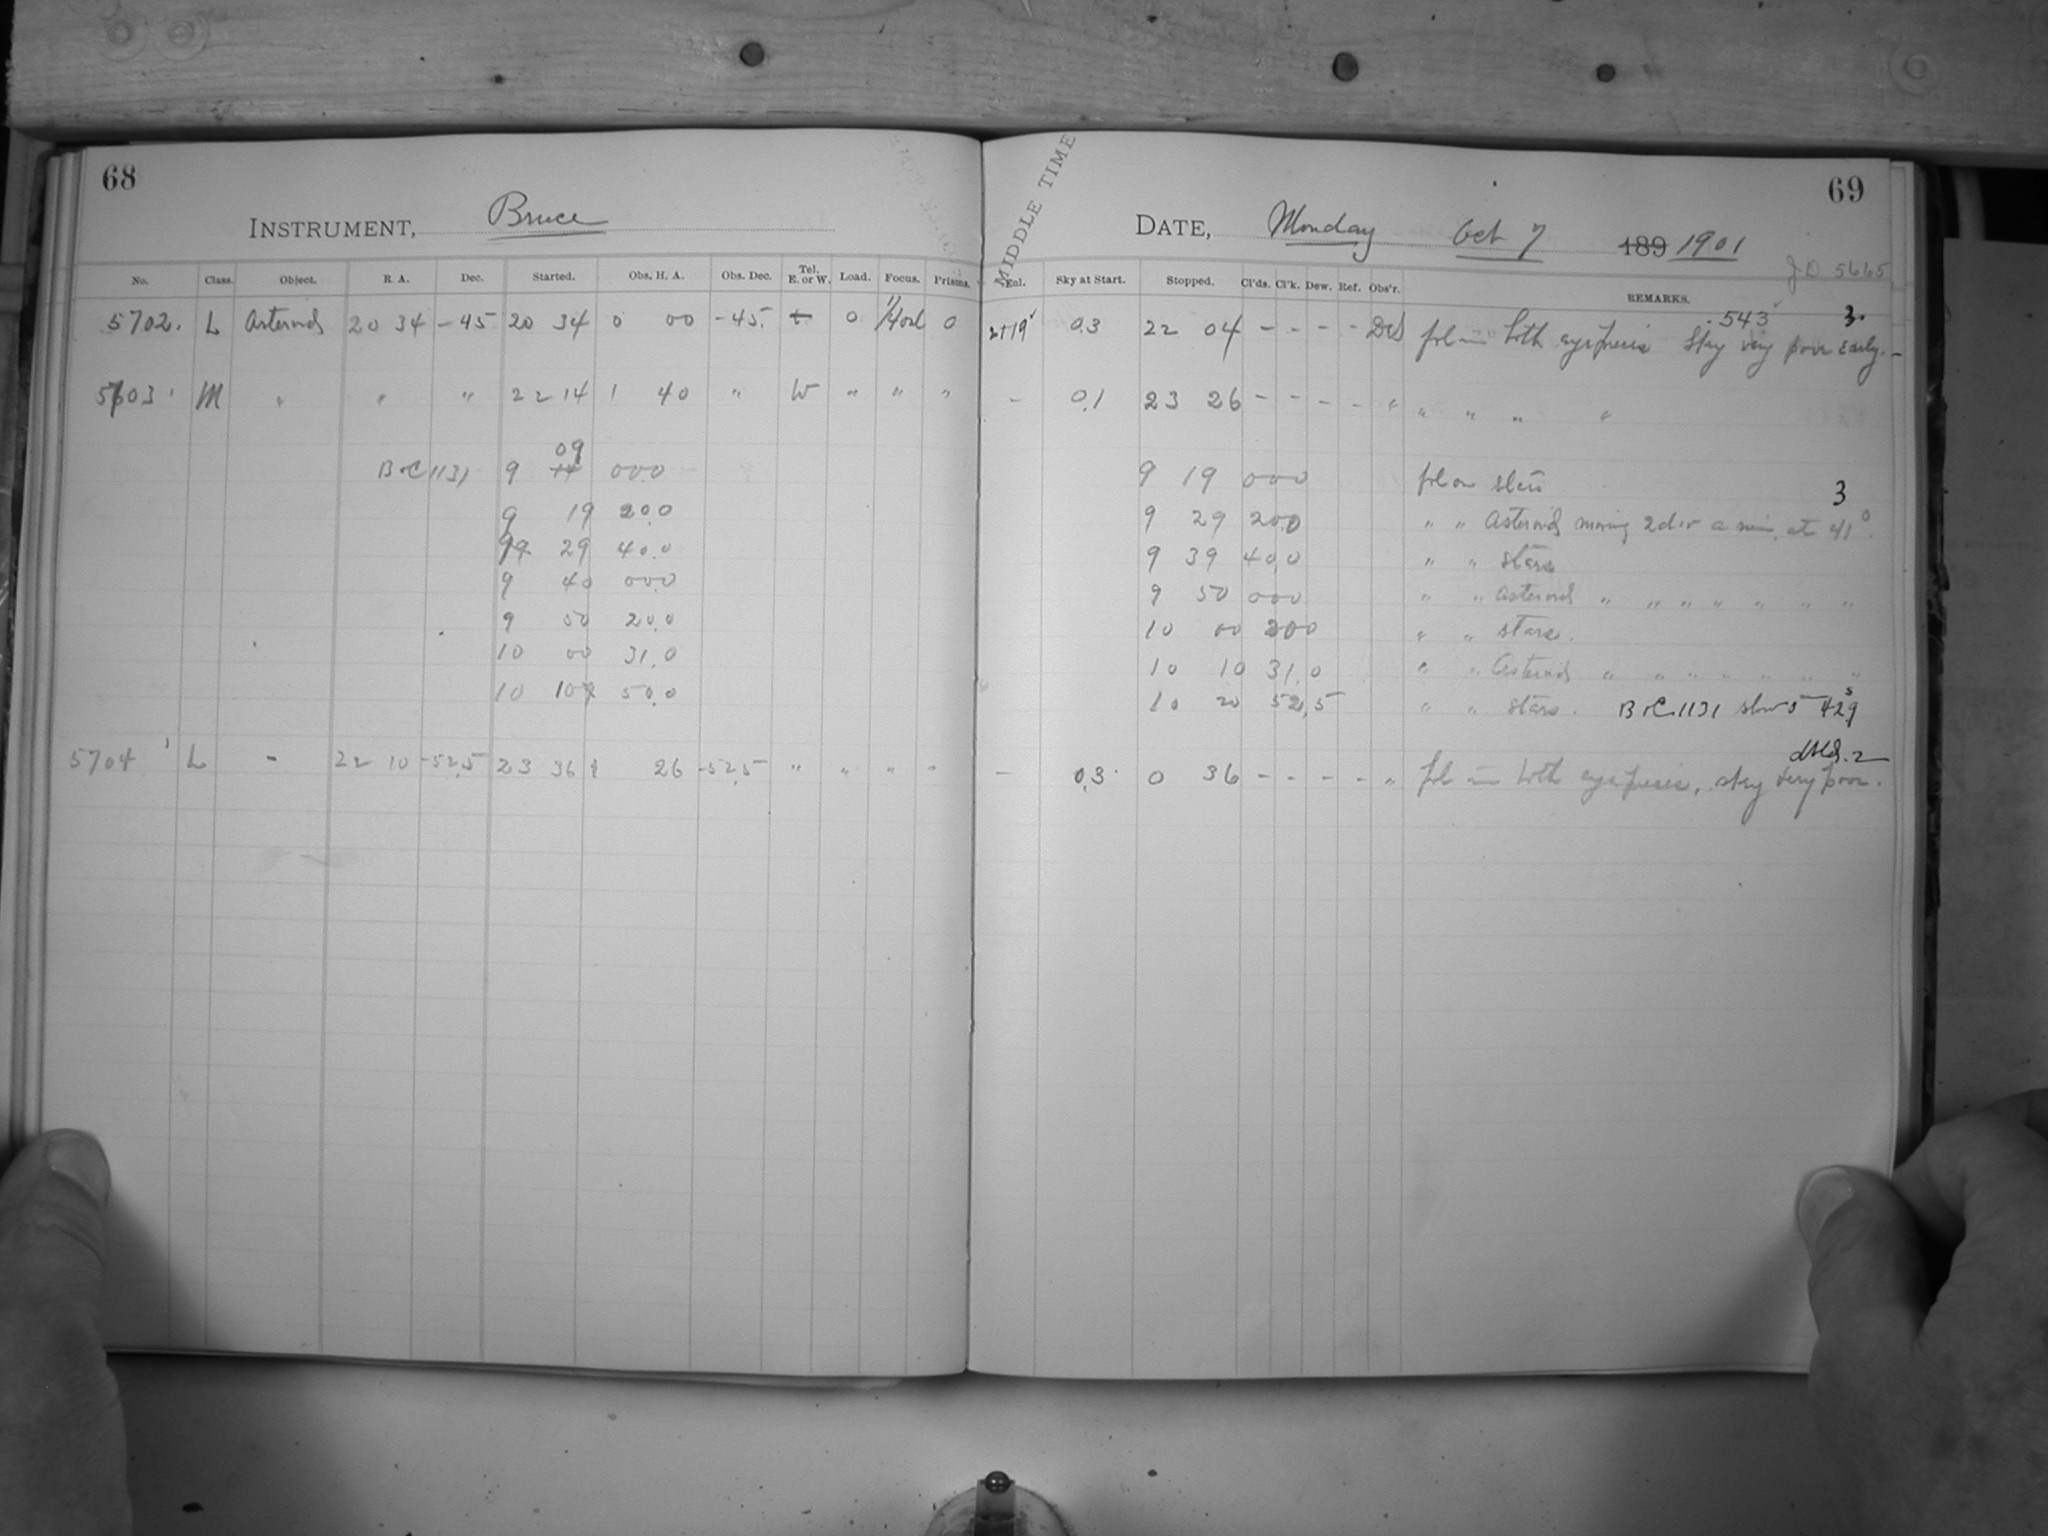 68
INSTRUMENT, Bruce
No. Class. Object. R. A. Dec. Started. Obs. H. A. Obs. Dec. Tel. E. or W. Load. Focus. Prisms.
5702. L Asteroid 20 34 -45 20 34 0 00 -45. 0 0
5703 M " " " 22 14 1 40 " W " " "
B+C 1131 9 09 00.0
9 19 20.0
9 29 40.0
9 40 00.0
9 50 20.0
10 00 31.0
10 10 50.0
5704 L - 22 10 -52.5 23 36 1 26 -52.5 " " " "
69
MIDDLE TIME
DATE, Monday Oct 7 189 1901
JD 5665
Exl. Sky at Start. Stopped. Cl'ds. Cl'k. Dew. Ref. Obs'r. REMARKS.
543 3.
21 19 0.3 22 04 - - - - fol in both eyepieces Sky very poor early.
- 0.1 23 26 - - - - " " " " "
9 19 00.0 fol on stars
3
9 29 20.0 " " Asteroid moving 2 div a min. at 41°.
9 39 40.0 " " stars
9 50 00.0 " " Asteroid " " " " " " "
10 00 20.0 " " stars.
10 10 31.0 " " Asteroid " " " " " " "
10 20 52.5 " " stars. B+C. 1131 slow 5 42s
- 0.3 0 36 - - - - " fol in both eyepieces, sky very poor.